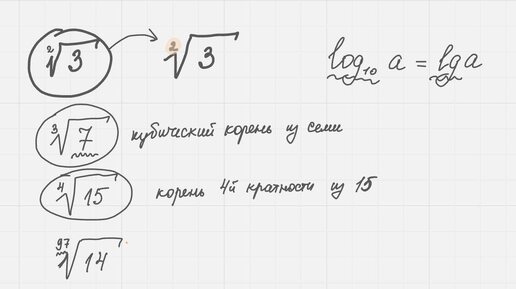 ²√3 → ²√3
log₁₀ a = lg a
³√7 кубический корень из семи
⁴√15 корень 4й кратности из 15
⁹⁷√14